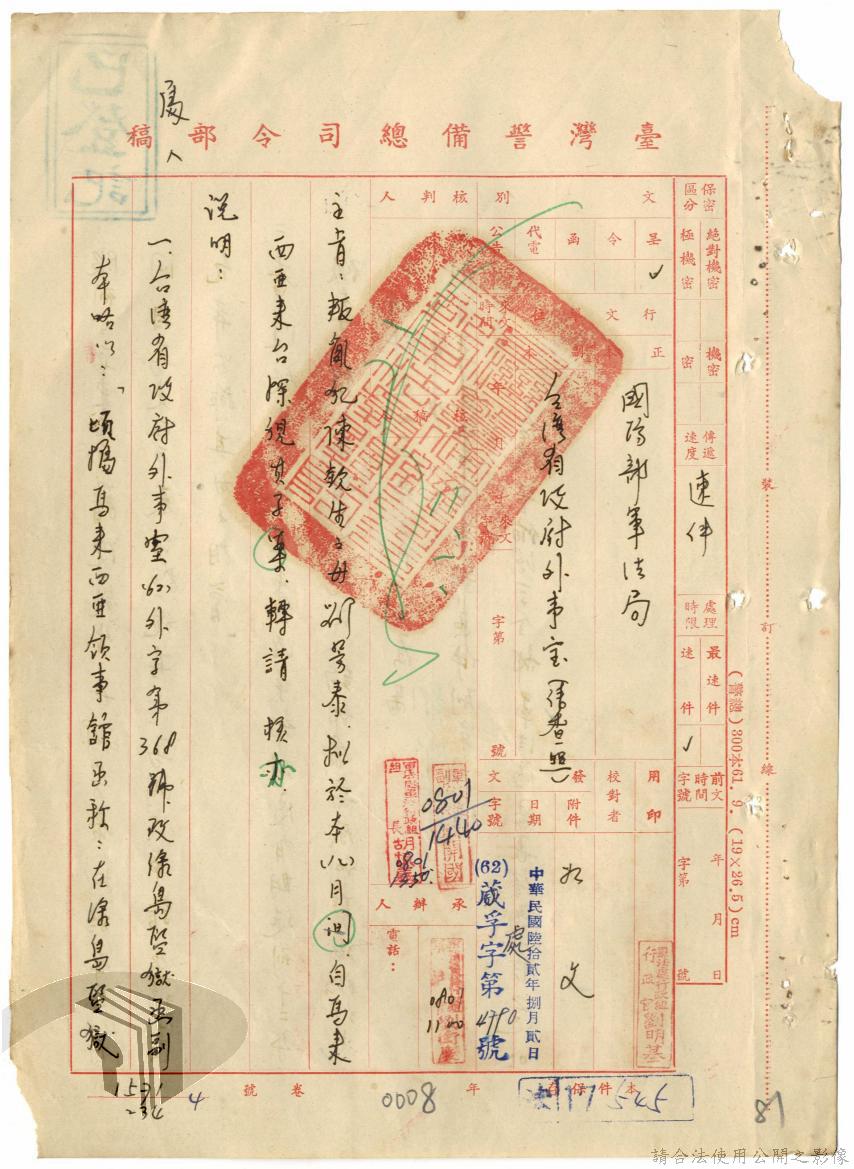 臺灣警備總司令部稿
已登記
處
保密區分
絕對機密
極機密
機密
密
傳遞速度
速件
處理時限
最速件
速件
前文時間字號
年 月 日
字第 號
文別
呈
令
函
代電
公告
行文
正本
國防部軍法局
台灣省政府外事室(請查照)
用印
校對者
發文
附件
日期
字號
如文
中華民國陸拾貳年捌月貳日
(62)蔵孚字第4790號
行政官劉明基
核判人
承辦人
電話:
0801
1440
0801
1350
0801
1100
主旨:叛亂犯陳乾生之母鄧 泰,拟於本(八)月 自馬來
西亞來台探視其子 ,轉請 核办
說明:
一、台湾省政府外事室(62)外字第368號致綠島監獄函副
本略以:「頃據馬來西亞領事館函称:在綠島監獄
裝
訂
線
(警誼)300本61.9.(19×26.5)cm
本件保存 年
0008
卷
4
號
1571
234
81
請合法使用公開之影像